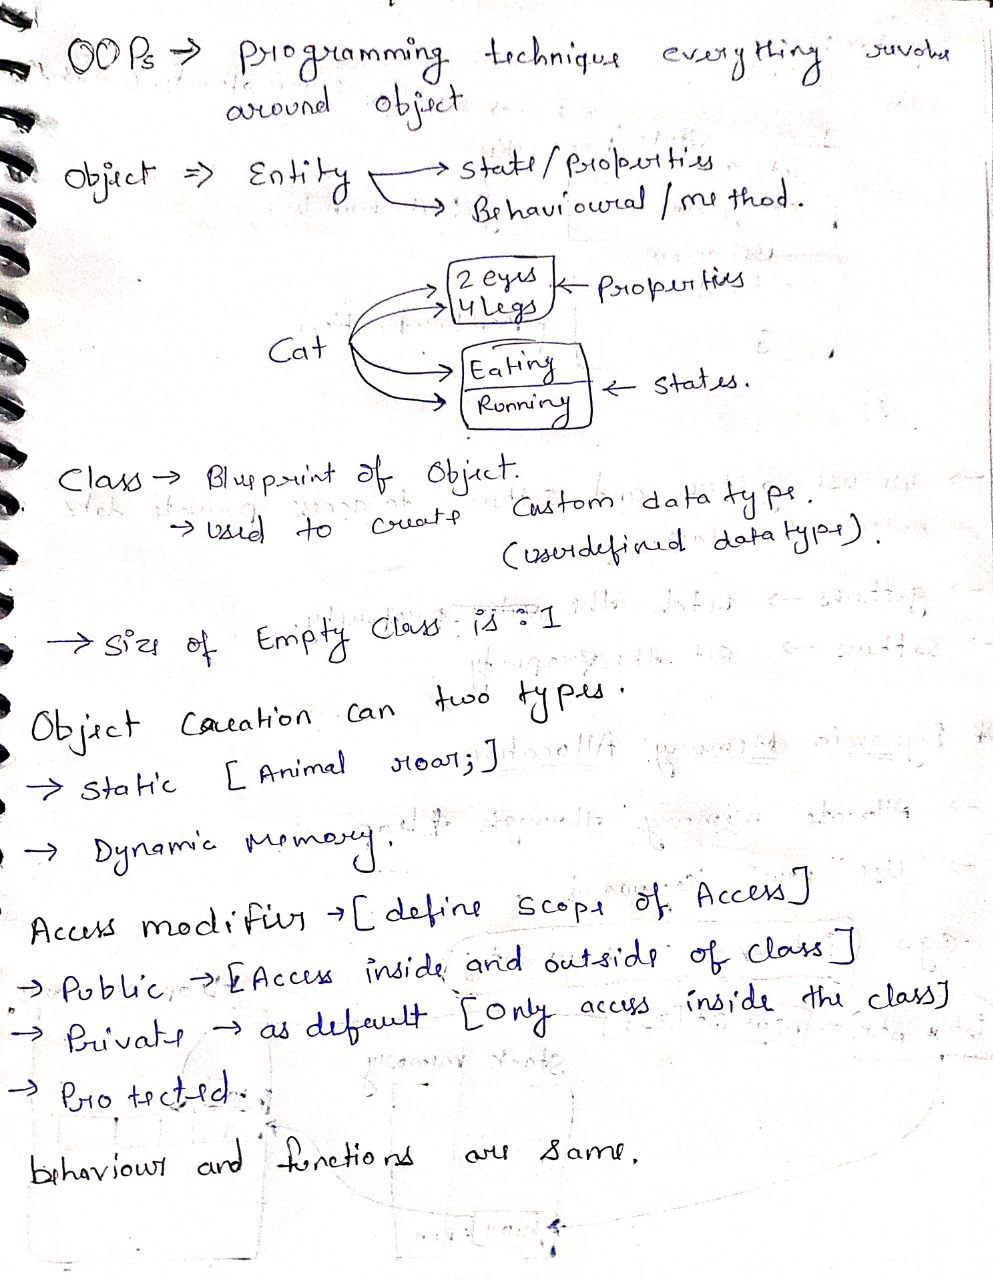 OOPs → Programming technique everything revolve
around object
Object ⇒ Entity → State/Properties
→ Behavioural/method.
2 eyes
4 legs
← Properties
Cat
Eating
Running
← States.
Class → Blueprint of Object.
→ used to create Custom data type.
(userdefined data type).
→ Size of Empty Class is : 1
Object Careation can two types.
→ Static [Animal roar;]
→ Dynamic Memory.
Access modifier → [define Scope of Access]
→ Public → [Access inside and outside of class]
→ Private → as default [Only access inside the class]
→ Protected.
behaviour and functions are same.